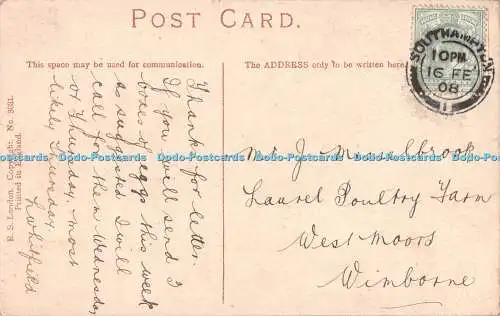 POST CARD.
This space may be used for communication.
The ADDRESS only to be written here.
SOUTHAMPTON
10 PM
16 FE
08
1
R. S. London. Copyright, No. 3631.
Printed in England.
Thanks for letter.
If you will send 3
boxes of eggs this week
as suggested I will
call for them Wednesday
or Thursday, most
likely Thursday.
L Whitfield
Mr J. Masselbrook
Laurel Poultry Farm
West Moors
Wimborne
Postcards Postcards Postcards Postcards Postcards Postcards